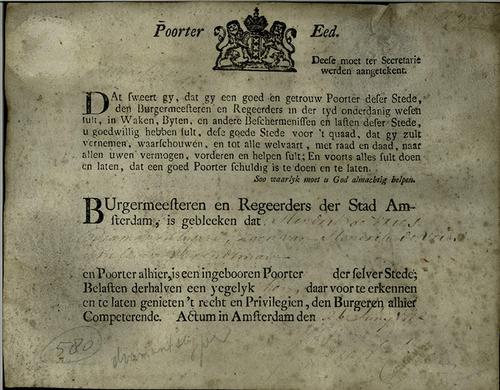 Poorter Eed.
Deese moet ter Secretarie
werden aangetekent.
DAt sweert gy, dat gy een goed en getrouw Poorter deser Stede,
den Burgermeesteren en Regeerders in der tyd onderdanig wesen
sult, in Waken, Byten, en andere Beschermenissen en lasten deser Stede,
u goedwillig hebben sult, dese goede Stede voor 't quaad, dat gy zult
vernemen, waarschouwen, en tot alle welvaart, met raad en daad, naar
allen uwen vermogen, vorderen en helpen sult; En voorts alles sult doen
en laten, dat een goed Poorter schuldig is te doen en te laten.
Soo waarlyk moet u God almachtig helpen.
BUrgermeesteren en Regeerders der Stad Am-
sterdam, is gebleeken dat
en Poorter alhier, is een ingebooren Poorter der selver Stede;
Belasten derhalven een yegelyk daar voor te erkennen
en te laten genieten 't recht en Privilegien, den Burgeren alhier
Competerende. Actum in Amsterdam den
580